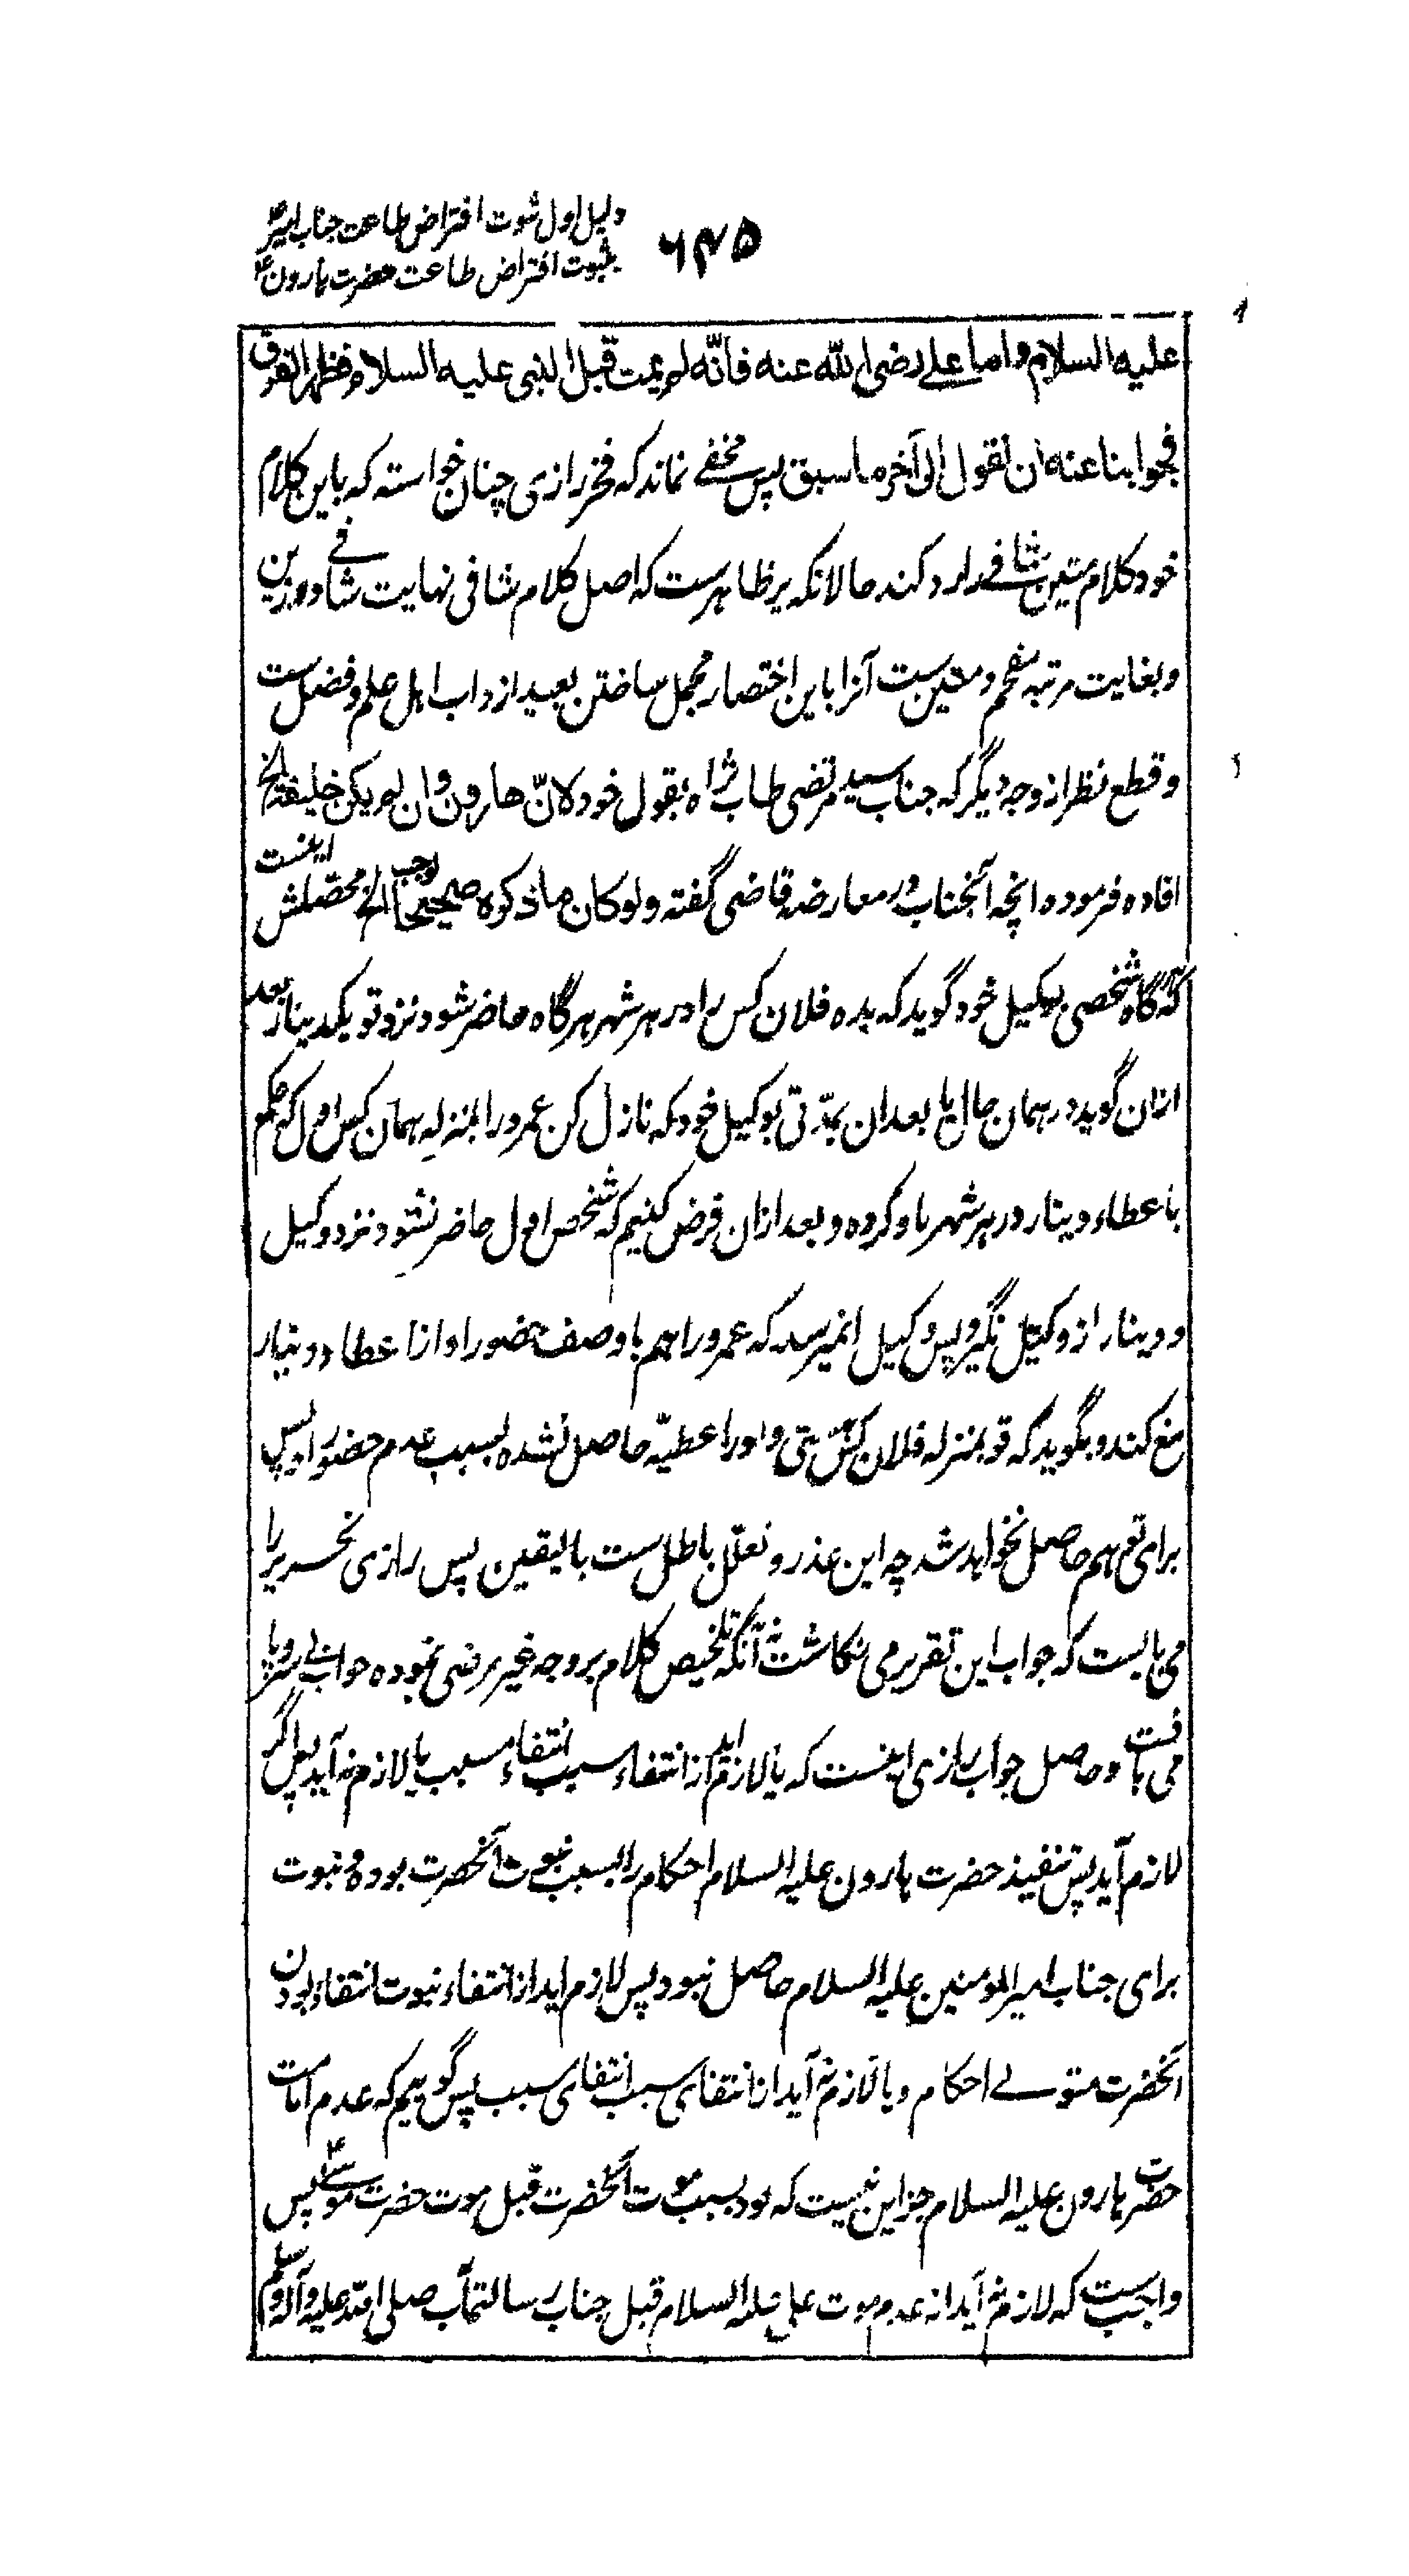 دلیل اول ثبوت افتراض طاعت جناب امیرؑ
بثبوت افتراض طاعت حضرت ہارونؑ
۶۴۵
علیه السلام واما علی رضی الله عنه فانّه لم یمت قبل النبی علیه السلام فظهر الفرق
فجوابنا عنه ان نقول الی آخر ما سبق پس مخفی نماند که فخر رازی چنان خواسته که باین کلام
خود کلام متین شافی را رد کند حالانکه پر ظاهرست که اصل کلام شافی نهایت شافی و رزین
وبغایت مرتبه مفخم و متین ست آنرا باین اختصار مجمل ساختن بعید از داب اهل علم و فضل ست
و قطع نظر از وجه دیگر که جناب سید مرتضی طاب ثراه بقول خود لانّ هارون وان لم یکن خلیفة الخ
افاده فرموده انچه آنجناب در معارضه قاضی گفته ولو کان ما ذکروه صحیحا لوجب الخ محصلش اینست
که هرگاه شخصی بوکیل خود گوید که بده فلان کس را در هر شهر هرگاه حاضر شود نزد تو یکدینار بعد
ازان گوید در همان حال یا بعد ان بمدّتی بوکیل خود که نازل کن عمرو را بمنزله همان کس اول که حکم
باعطاء دینار در هر شهر باو کرده و بعد ازان فرض کنیم که شخص اول حاضر نشود نزد وکیل
و دینار از وکیل نگیرد پس وکیل را نمیرسد که عمرو را هم با وصف حضور او از اعطاء دینار
منع کند و بگوید که تو بمنزله فلان کس هستی و او را عطیّه حاصل نشده بسبب عدم حضور او پس
برای تو هم حاصل نخواهد شد چه این عذر و تعلّل باطل ست بالیقین پس رازی نحریر را
می بایست که جواب این تقریر می نگاشت نه آنکه تلخیص کلام بر وجه غیر مرضی نموده جواب بی سر و پا
می بافت و حاصل جواب رازی اینست که یا لازم آید از انتفاء سبب انتفاء مسبب یا لازم نه آید پس اگر
لازم آید پس تنفیذ حضرت هارون علیه السلام احکام را بسبب نبوت آنحضرت بوده و نبوت
برای جناب امیر المومنین علیه السلام حاصل نبود پس لازم اید از انتفاء نبوت انتفاء بودن
آنحضرت متولی احکام و یا لازم نه آید از انتفای سبب انتفای سبب پس گوییم که عدم امامت
حضرت هارون علیه السلام جز این نیست که بود بسبب موت آنحضرت قبل موت حضرت موسیؑ پس
واجب ست که لازم نه آید از عدم موت علی علیه السلام قبل جناب رسالتمآب صلی الله علیه وآله وسلم